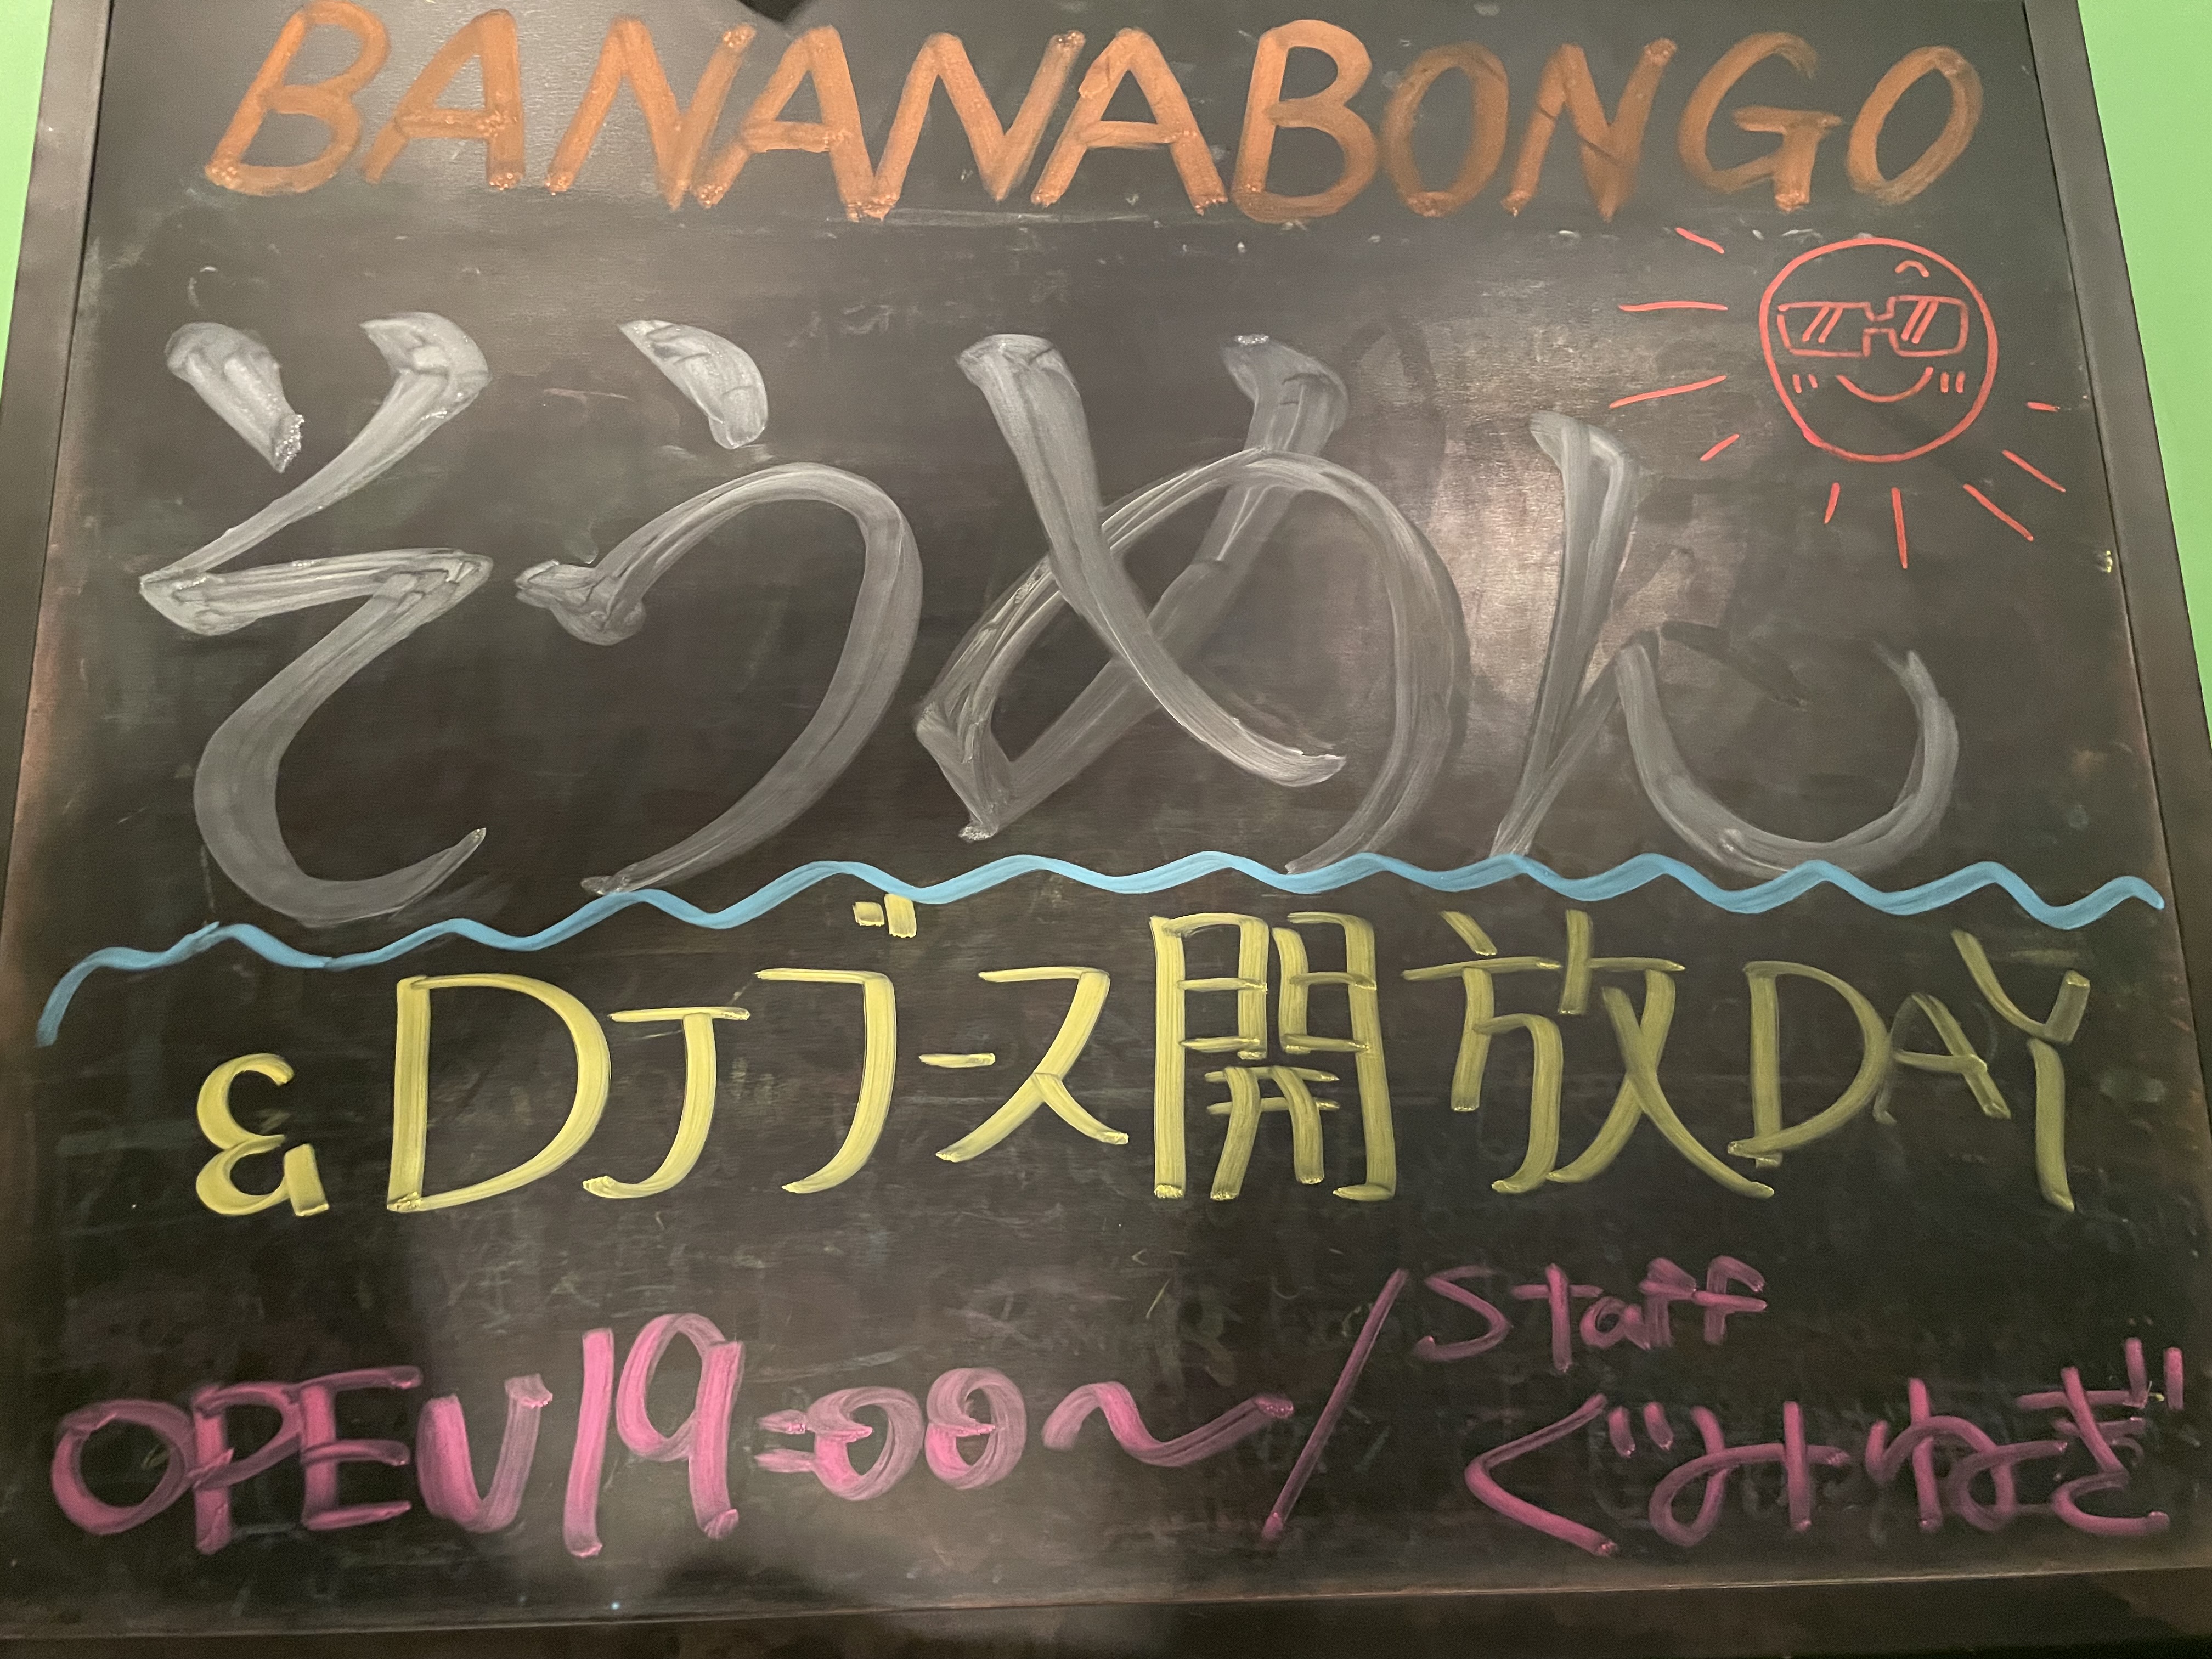 BANANABONGO
そうめん
& DJブース開放DAY
OPEN 19:00〜 / Staff
ぐみねぎ